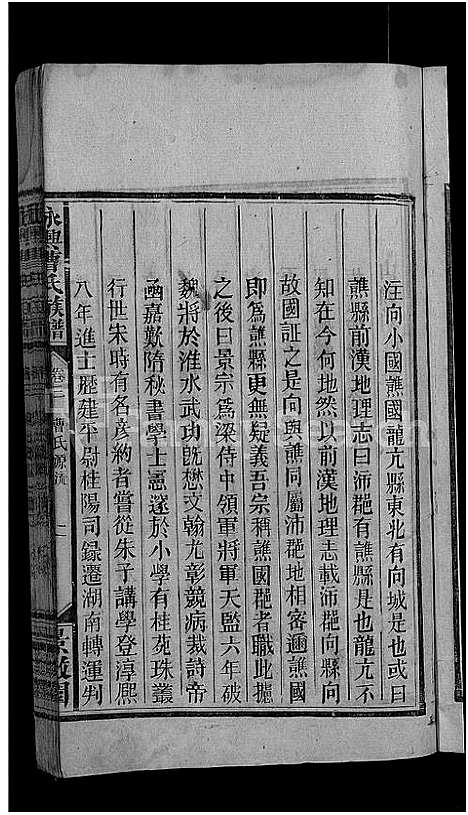 注向小國譙國龍亢縣東北有向城是也或曰
譙縣前漢地理志曰沛郡有譙縣是也龍亢不
知在今何地然以前漢地理志載沛郡向縣向
故國証之是向與譙同屬沛郡地相密邇譙國
即為譙縣更無疑義吾宗稱譙國郡者職此據
之後曰景宗為梁侍中領軍將軍天監六年破
魏將於淮水武功旣懋文翰尤彰競病裁詩帝
亟嘉歎隋秋書學士憲邃於小學有桂苑珠叢
行世宋時有名彦納者嘗從朱子講學登淳熙
八年進士歷建平尉桂陽司録遷湖南轉運判
永興曹氏族譜 卷二 曹氏源流